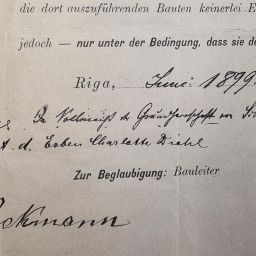 die dort auszuführenden Bauten keinerlei E
jedoch — nur unter der Bedingung, dass sie de
Riga, Juni 1899.
In Vollmacht d. Grundherrschaft von
d. Erben Charlotte Diehl
Zur Beglaubigung: Bauleiter
ckmann